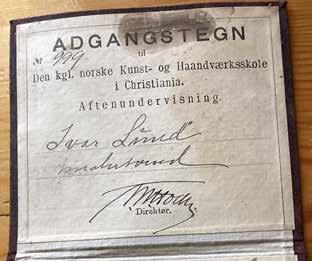 ADGANGSTEGN
№ 999 til
Den kgl. norske Kunst- og Haandværksskole
i Christiania.
Aftenundervisning.
Ivar Lund
Direktør.